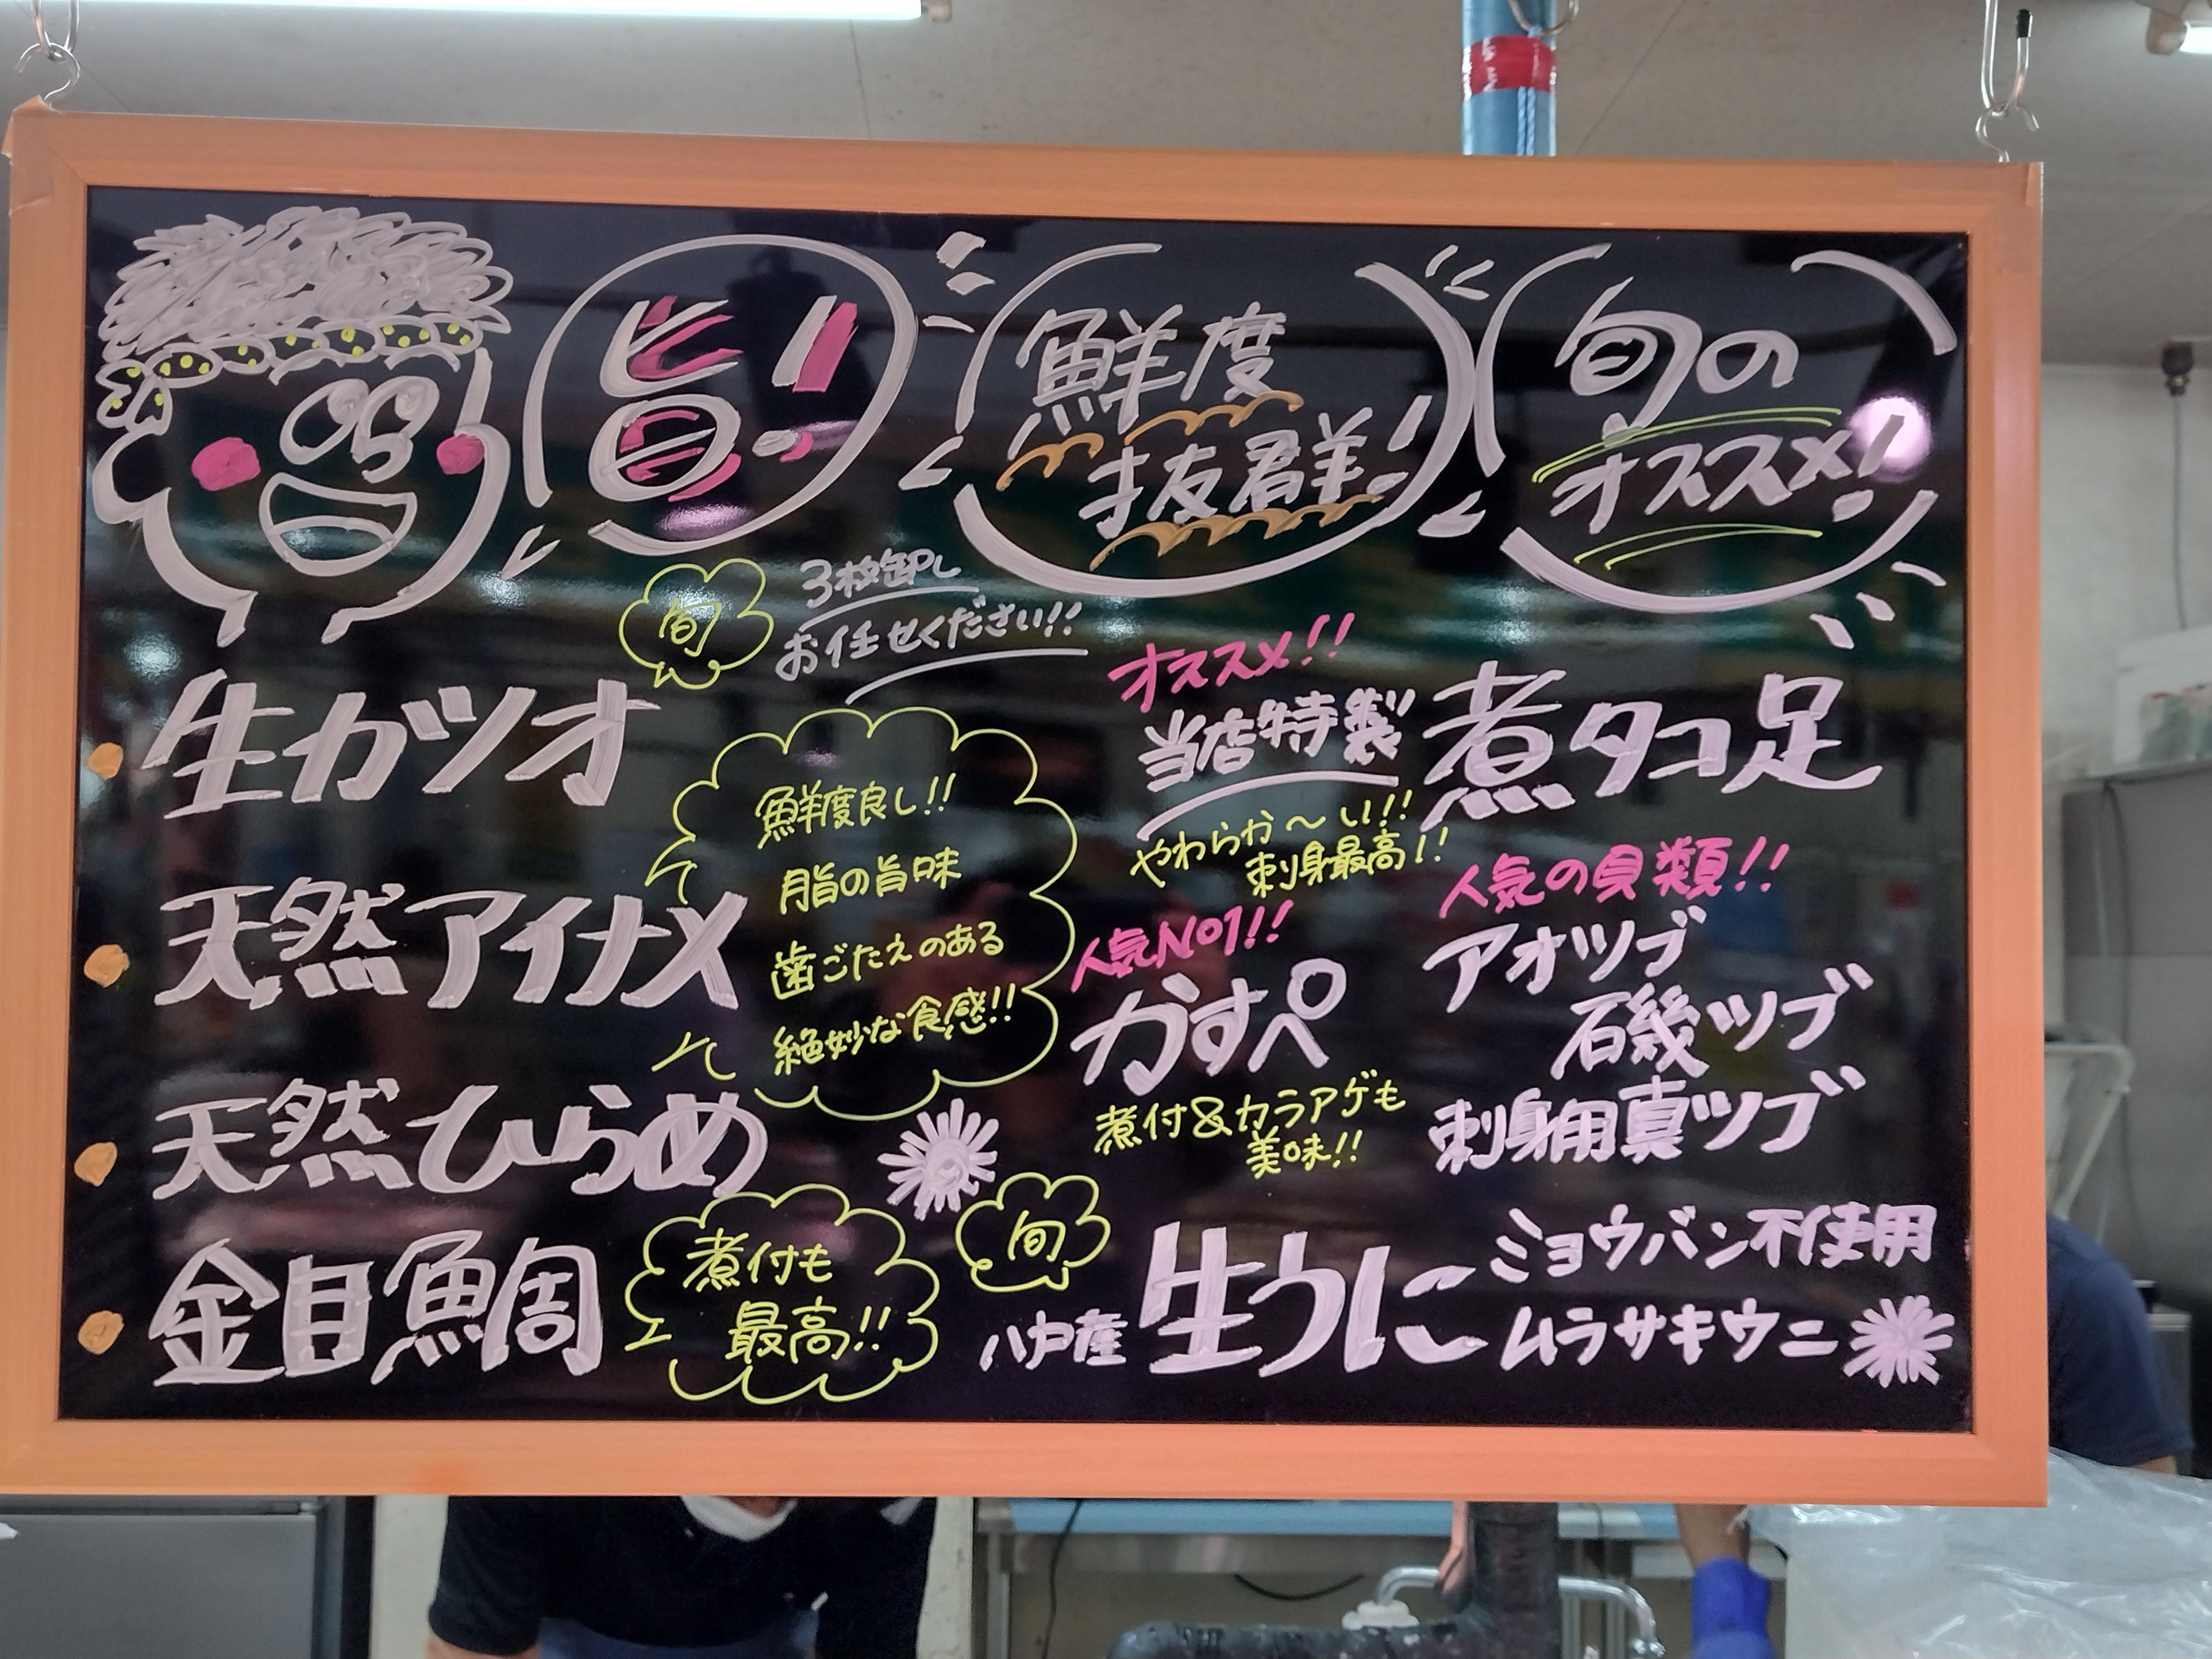 旨!
鮮度
抜群!
旬の
オススメ!
旬
3枚卸し
お任せください!!
生ガツオ
天然アイナメ
天然ひらめ
金目鯛
鮮度良し!!
脂の旨味
歯ごたえのある
絶妙な食感!!
煮付も
最高!!
オススメ!!
当店特製
煮タコ足
やわらか〜い!!
刺身最高!!
人気No1!!
かすぺ
煮付&カラアゲも
美味!!
人気の貝類!!
アオツブ
石磯ツブ
刺身用真ツブ
旬
八戸産
生うに
ミョウバン不使用
ムラサキウニ